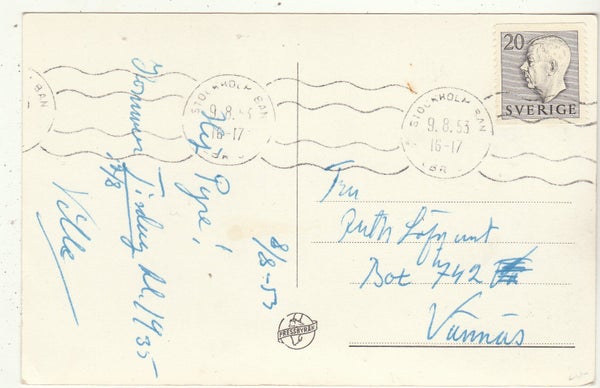 8/8-53
Hej Pyre!
Kommer Tisdag kl. 1935
11/8
Ville
STOCKHOLM BAN
9.8.53
16-17
BR
STOCKHOLM BAN
9.8.53
16-17
BR
BAN
20
SVERIGE
Fru
Ruth Löfqvist
Box 742
Vännäs
PRESSBYRÅN